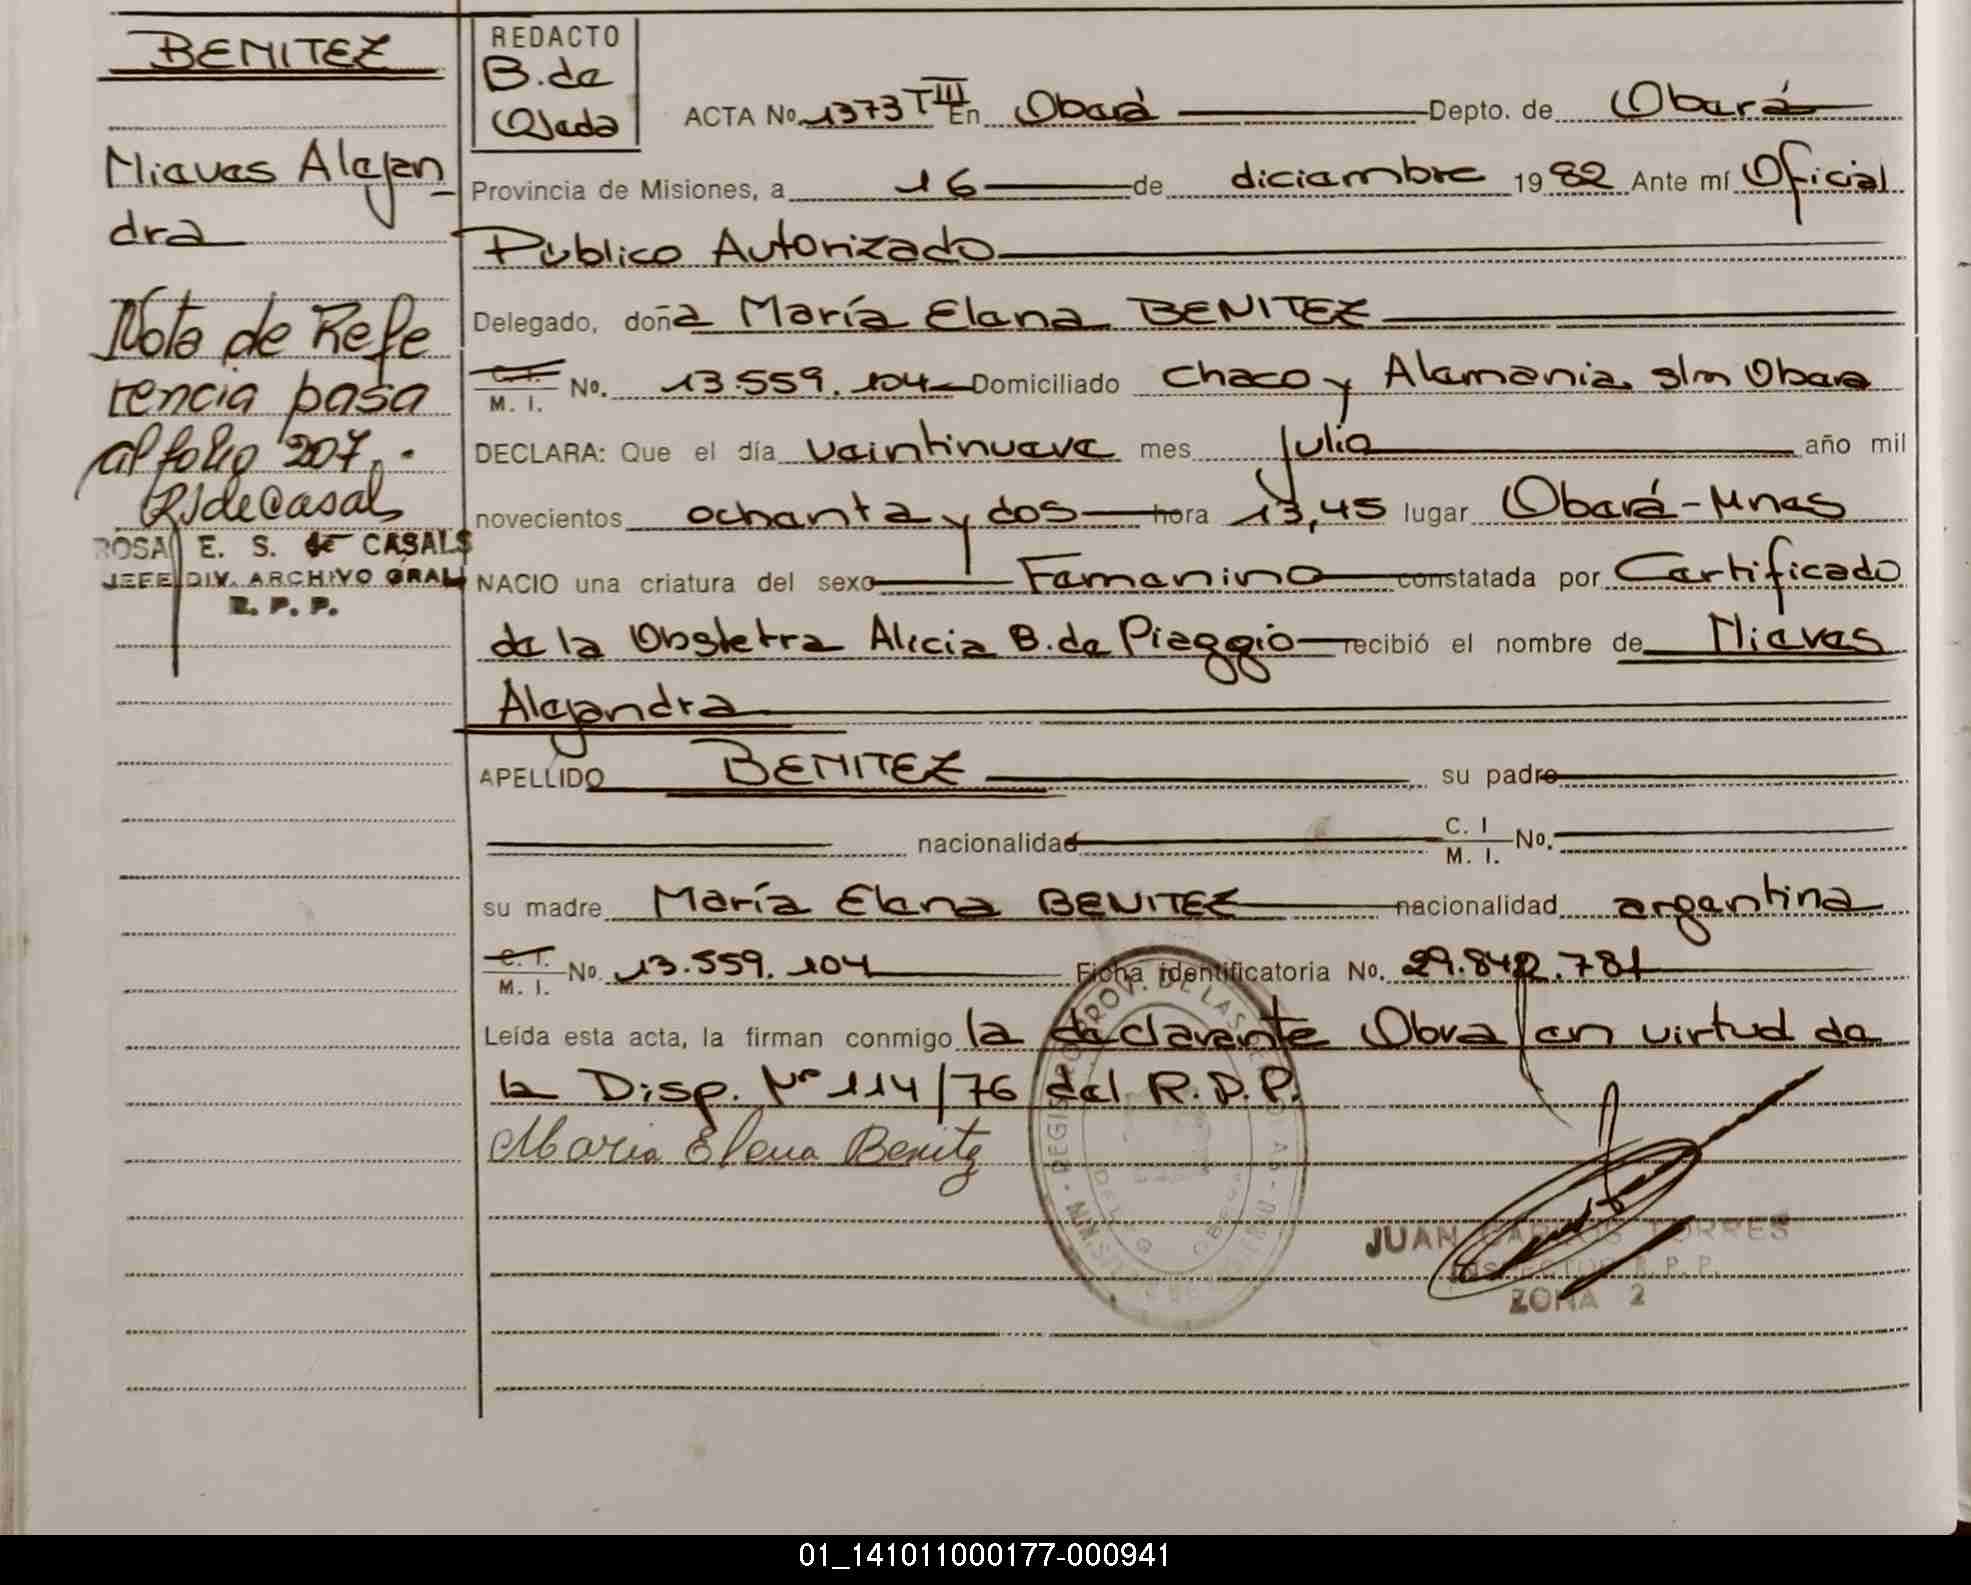 BENITEZ
Nieves Alejan
dra
Nota de Refe
rencia pasa
al folio 207.-
RSdeCasals
ROSA E. S. de CASALS
JEFE DIV. ARCHIVO GRAL
R. P. P.
REDACTO
B. de
Ojeda
ACTA No. 1373 T III En Oberá Depto. de Oberá
Provincia de Misiones, a 16 de diciembre 1982 Ante mí Oficial
Público Autorizado
Delegado, doña María Elena BENITEZ
C. I. M. I. No. 13.559.104 Domiciliado Chaco y Alemania s/n Obera
DECLARA: Que el día veintinueve mes julio año mil
novecientos ochenta y dos hora 13,45 lugar Oberá-Mnes
NACIO una criatura del sexo Femenino constatada por Certificado
de la Obstetra Alicia B. de Piaggio recibió el nombre de Nieves
Alejandra
APELLIDO BENITEZ su padre
nacionalidad C. I M. I. No.
su madre María Elena BENITEZ nacionalidad argentina
C. I. M. I. No. 13.559.104 Ficha identificatoria No. 29.842.781
Leída esta acta, la firman conmigo la declarante Obra en virtud de
la Disp. Nº 114/76 del R.D.P.
Maria Elena Benitez
JUAN CARLOS TORRES
INSPECTOR R. P. P.
ZONA 2
01_141011000177-000941